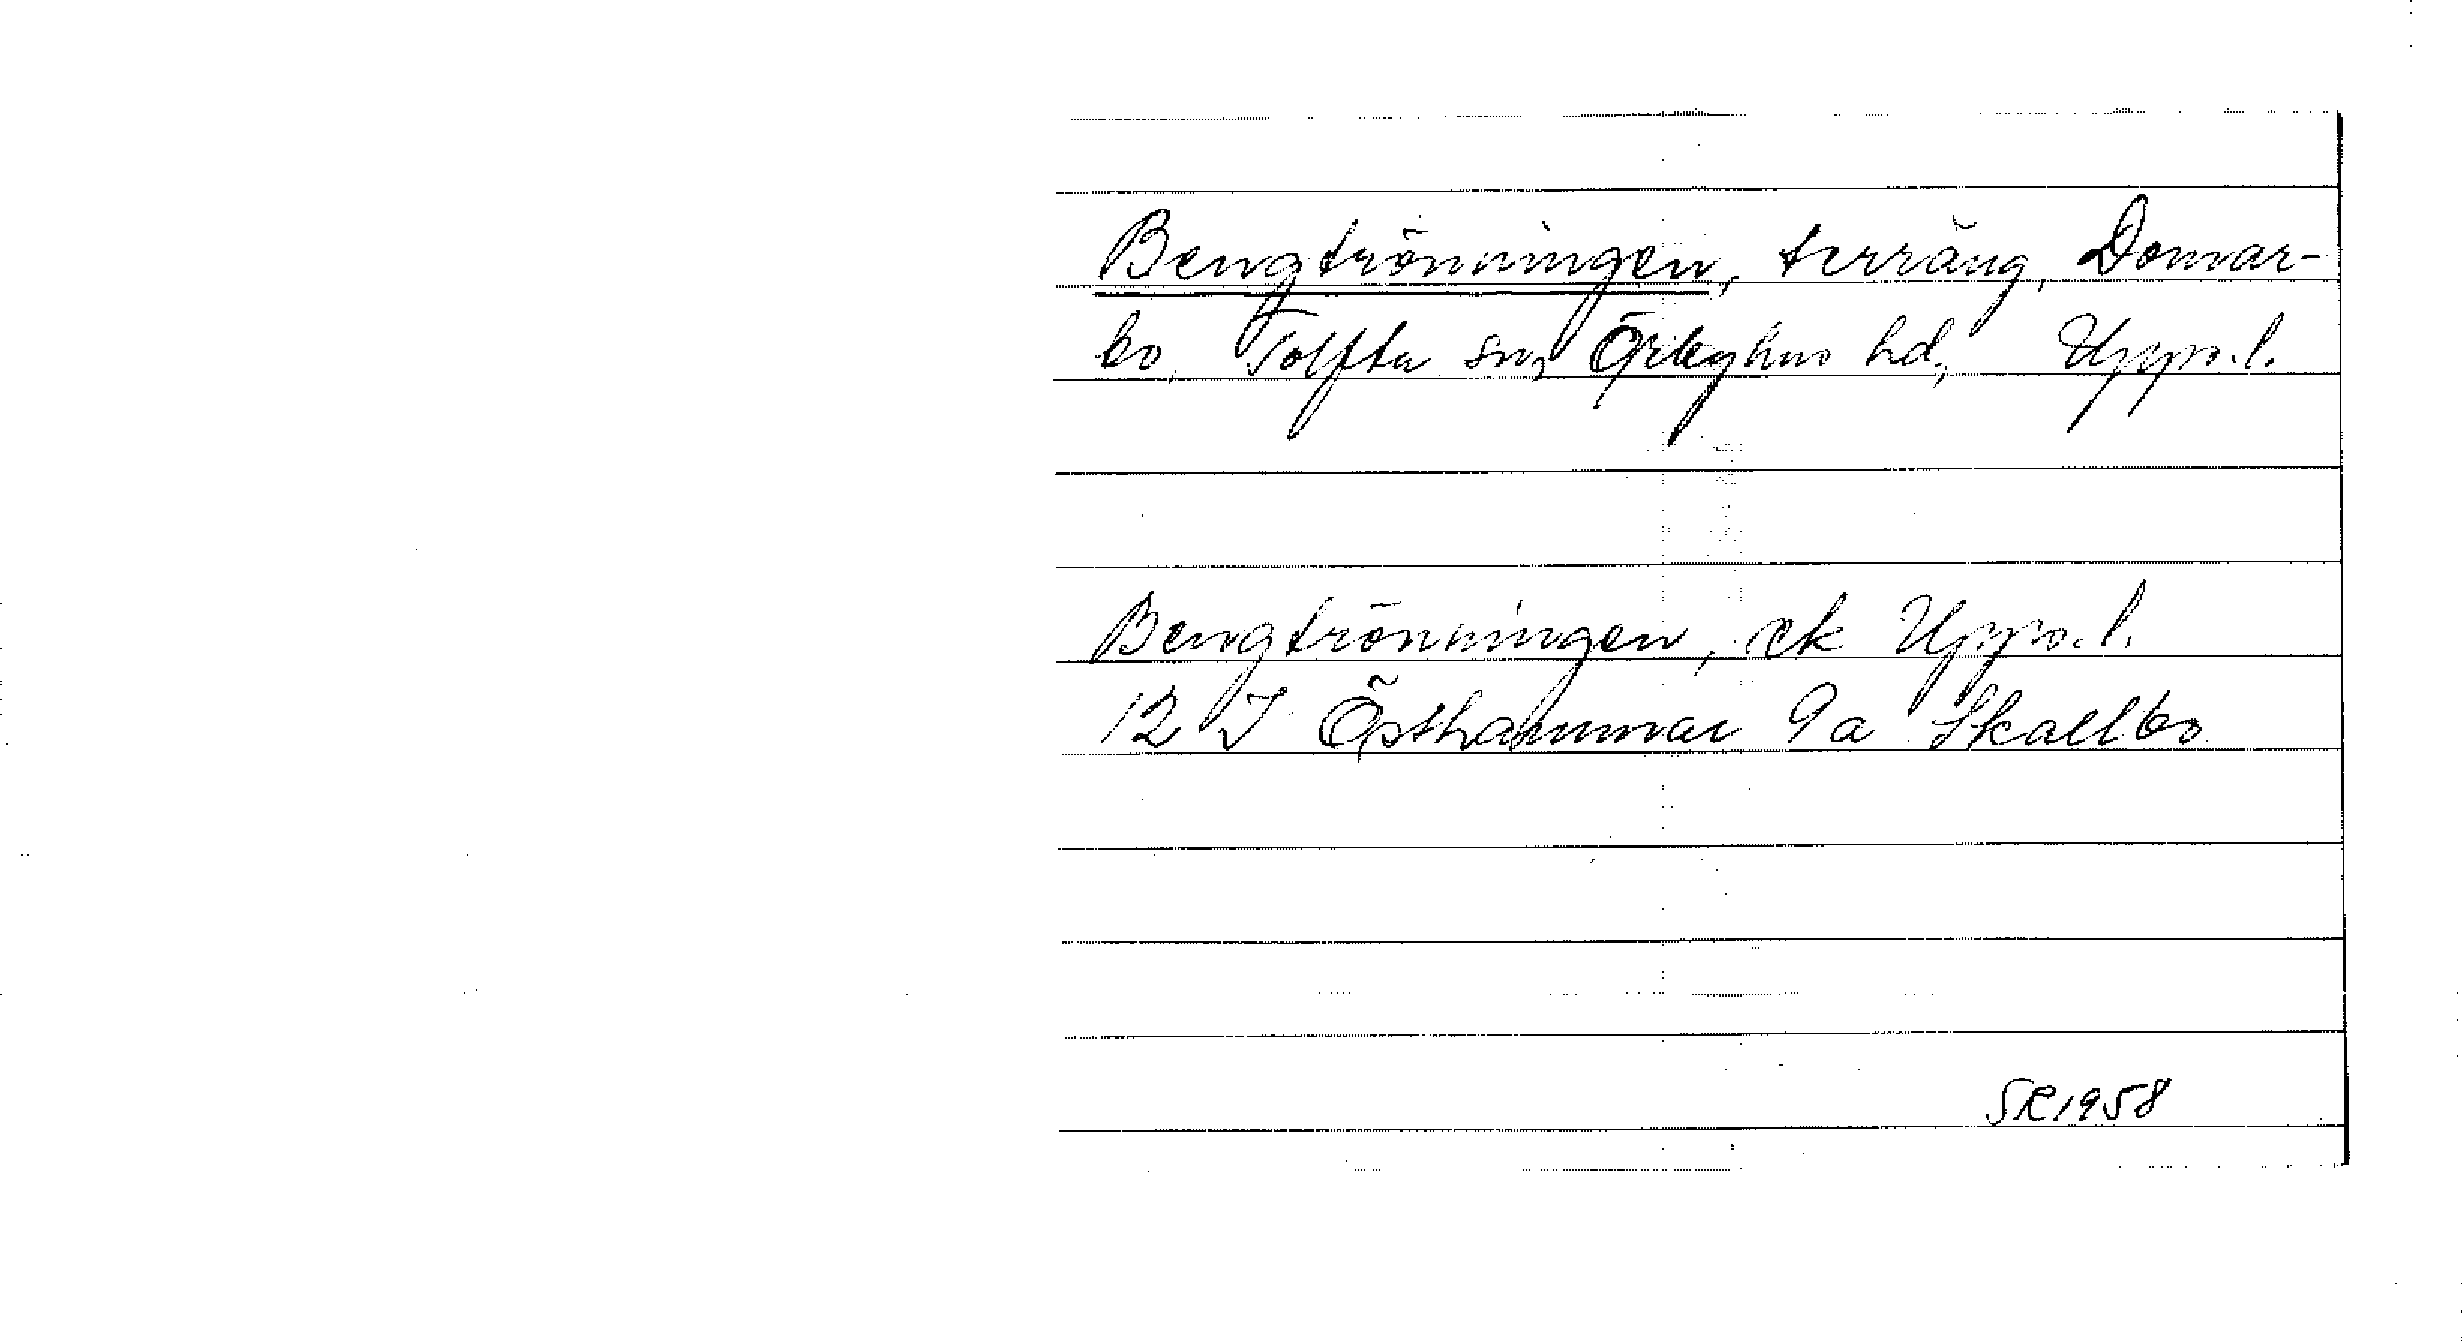 Bengtrönningen, terräng, Domar-
bo, Tolfta sn, Örbyhus hd, Upps. l.
Bengtrönningen, ek Upps. l.
12 I Östhammar 9a Skallbo
SR 1958